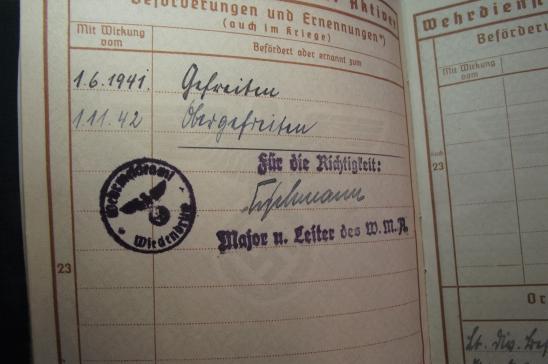 Beförderungen und Ernennungen*)
(auch im Kriege)
Mit Wirkung
vom
Befördert oder ernannt zum
1.6.1941.
Gefreiten
1.11.42
Obergefreiten
Für die Richtigkeit:
Major u. Leiter des W.M.A.
Wiedenbrück
23
Wehrdienst
Beförder
Mit Wirkung
vom
23